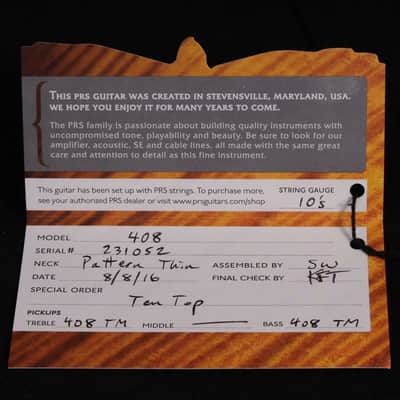 THIS PRS GUITAR WAS CREATED IN STEVENSVILLE, MARYLAND, USA.
WE HOPE YOU ENJOY IT FOR MANY YEARS TO COME.
The PRS family is passionate about building quality instruments with
uncompromised tone, playability and beauty. Be sure to look for our
amplifier, acoustic, SE and cable lines, all made with the same great
care and attention to detail as this fine instrument.
This guitar has been set up with PRS strings. To purchase more,
see your authorized PRS dealer or visit www.prsguitars.com/shop
STRING GAUGE
10's
MODEL 408
SERIAL# 231052
NECK Pattern Thin ASSEMBLED BY SW
DATE 8/8/16 FINAL CHECK BY
SPECIAL ORDER
Ten Top
PICKUPS
TREBLE 408 TM MIDDLE BASS 408 TM